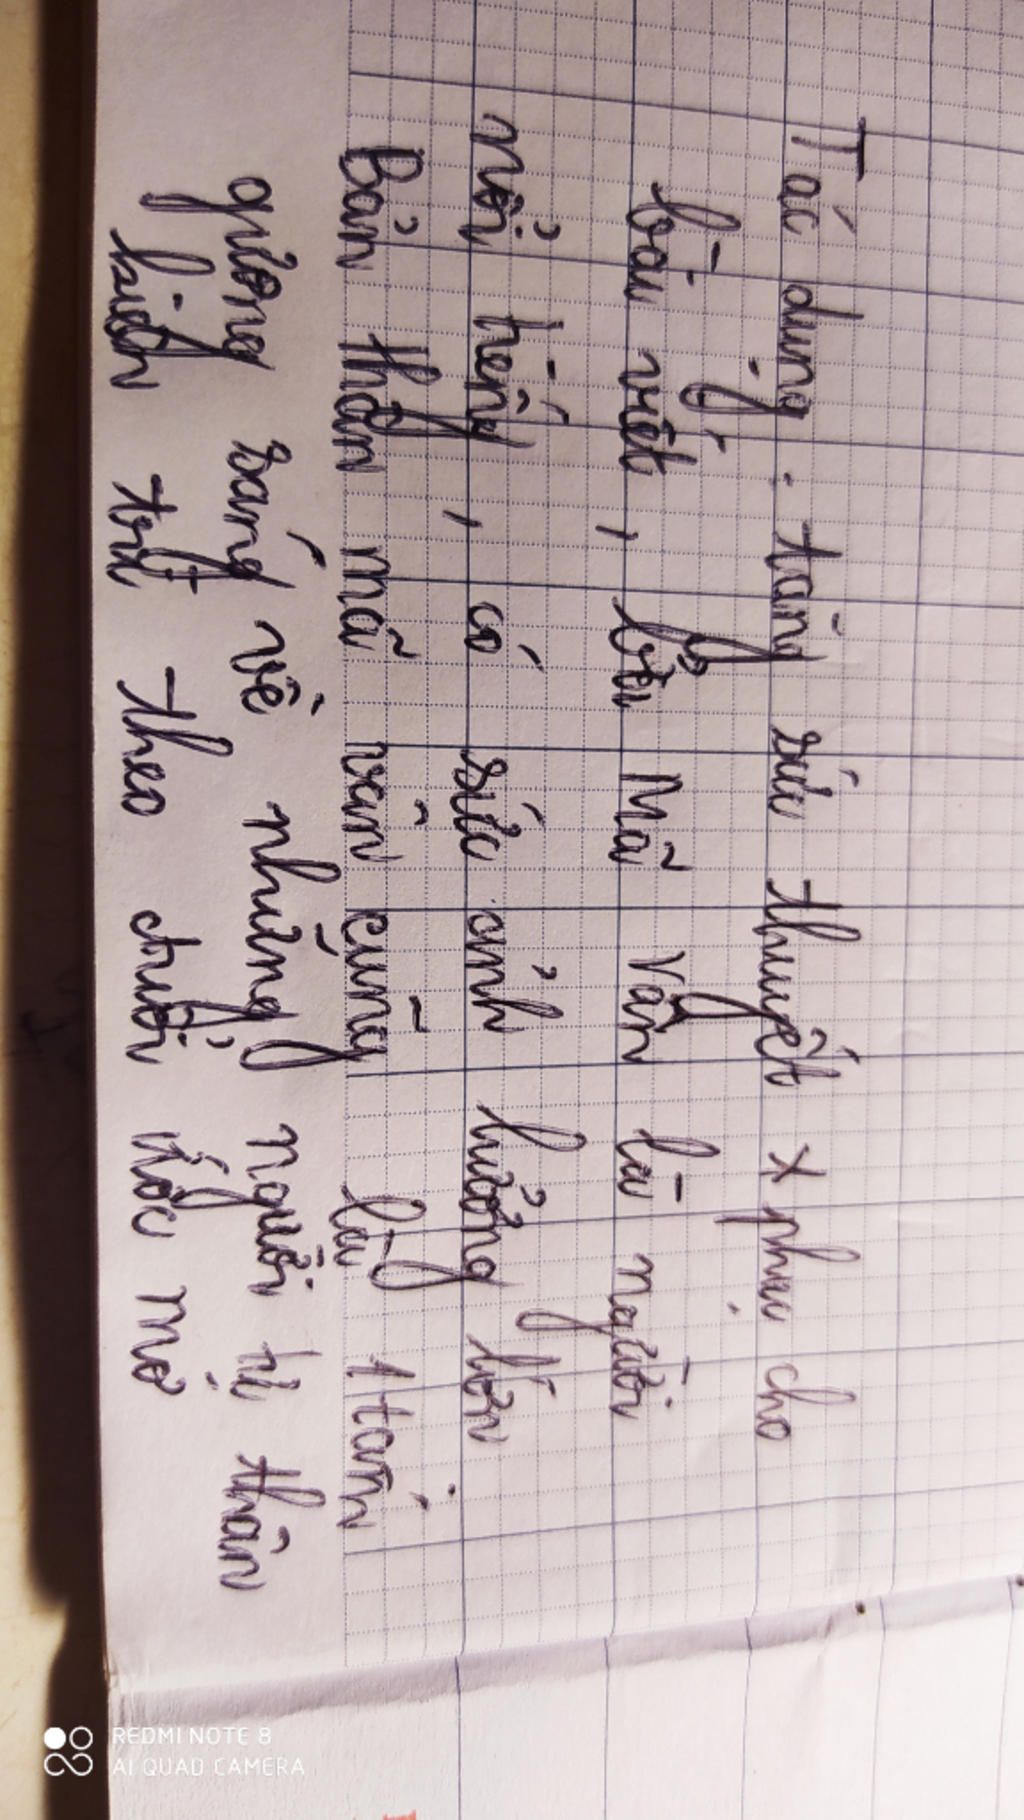 Tác dụng: tăng sức thuyết x phục cho
bài viết, bởi Mã Vân là người
nổi tiếng, có sức ảnh hưởng lớn
Bản thân mã vân cũng là 1 tấm
gương sáng về những người tự thân
kiên trì theo đuổi ước mơ
REDMI NOTE 8
AI QUAD CAMERA